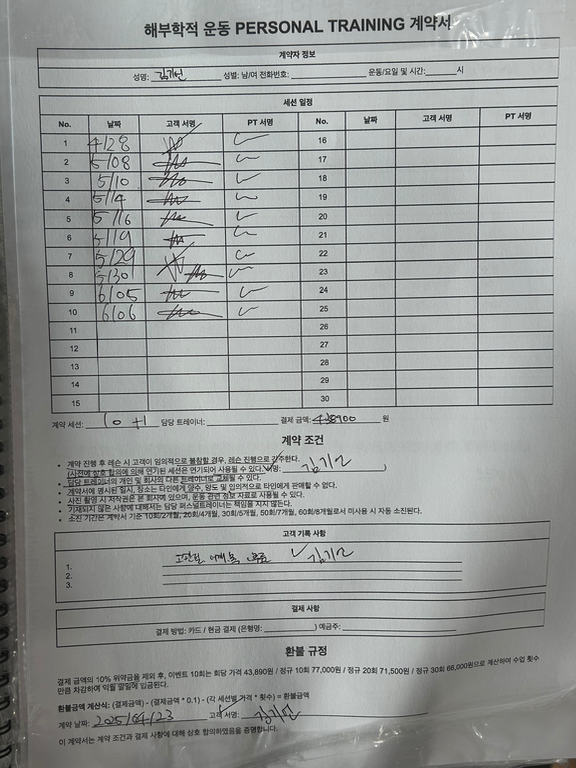 해부학적 운동 PERSONAL TRAINING 계약서
계약자 정보
성명: 성별: 남/여 전화번호: 운동/요일 및 시간: 시
세션 일정
No. 날짜 고객 서명 PT 서명 No. 날짜 고객 서명 PT 서명
1 4/28 16
2 5/08 17
3 5/10 18
4 5/14 19
5 5/16 20
6 5/19 21
7 5/29 22
8 5/30 23
9 6/05 24
10 6/06 25
11 26
12 27
13 28
14 29
15 30
계약 세션: 10 +1 담당 트레이너: 결제 금액: 원
계약 조건
• 계약 진행 후 레슨 시 고객이 임의적으로 불참할 경우, 레슨 진행으로 간주한다.
(사전에 상호 합의에 의해 연기된 세션은 연기되어 사용될 수 있다.)
• 담당 트레이너의 개인 및 회사의 다른 트레이너로 교체될 수 있다.
• 계약서에 명시된 일시, 장소는 타인에게 양수, 양도 및 임의적으로 타인에게 판매할 수 없다.
• 사진 촬영 시 저작권은 본 회사에 있으며, 운동 관련 정보 자료로 사용될 수 있다.
• 기재되지 않은 사항에 대해서는 담당 퍼스널트레이너는 책임을 지지 않는다.
• 소진 기간은 계약서 기준 10회/2개월, 20회/4개월, 30회/5개월, 50회/7개월, 60회/8개월로서 미사용 시 자동 소진된다.
고객 기록 사항
1.
2.
3.
결제 사항
결제 방법: 카드 / 현금 결제 (은행명: ) 예금주:
환불 규정
결제 금액의 10% 위약금을 제외 후, 이벤트 10회는 회당 가격 43,890원 / 정규 10회 77,000원 / 정규 20회 71,500원 / 정규 30회 66,000원으로 계산하여 수업 횟수
만큼 차감하여 익월 말일에 입금된다.
환불금액 계산식: (결제금액) - (결제금액 * 0.1) - (각 세션별 가격 * 횟수) = 환불금액
계약 날짜: 2025/04/23 고객 서명:
이 계약서는 계약 조건과 결제 사항에 대해 상호 합의하였음을 증명합니다.